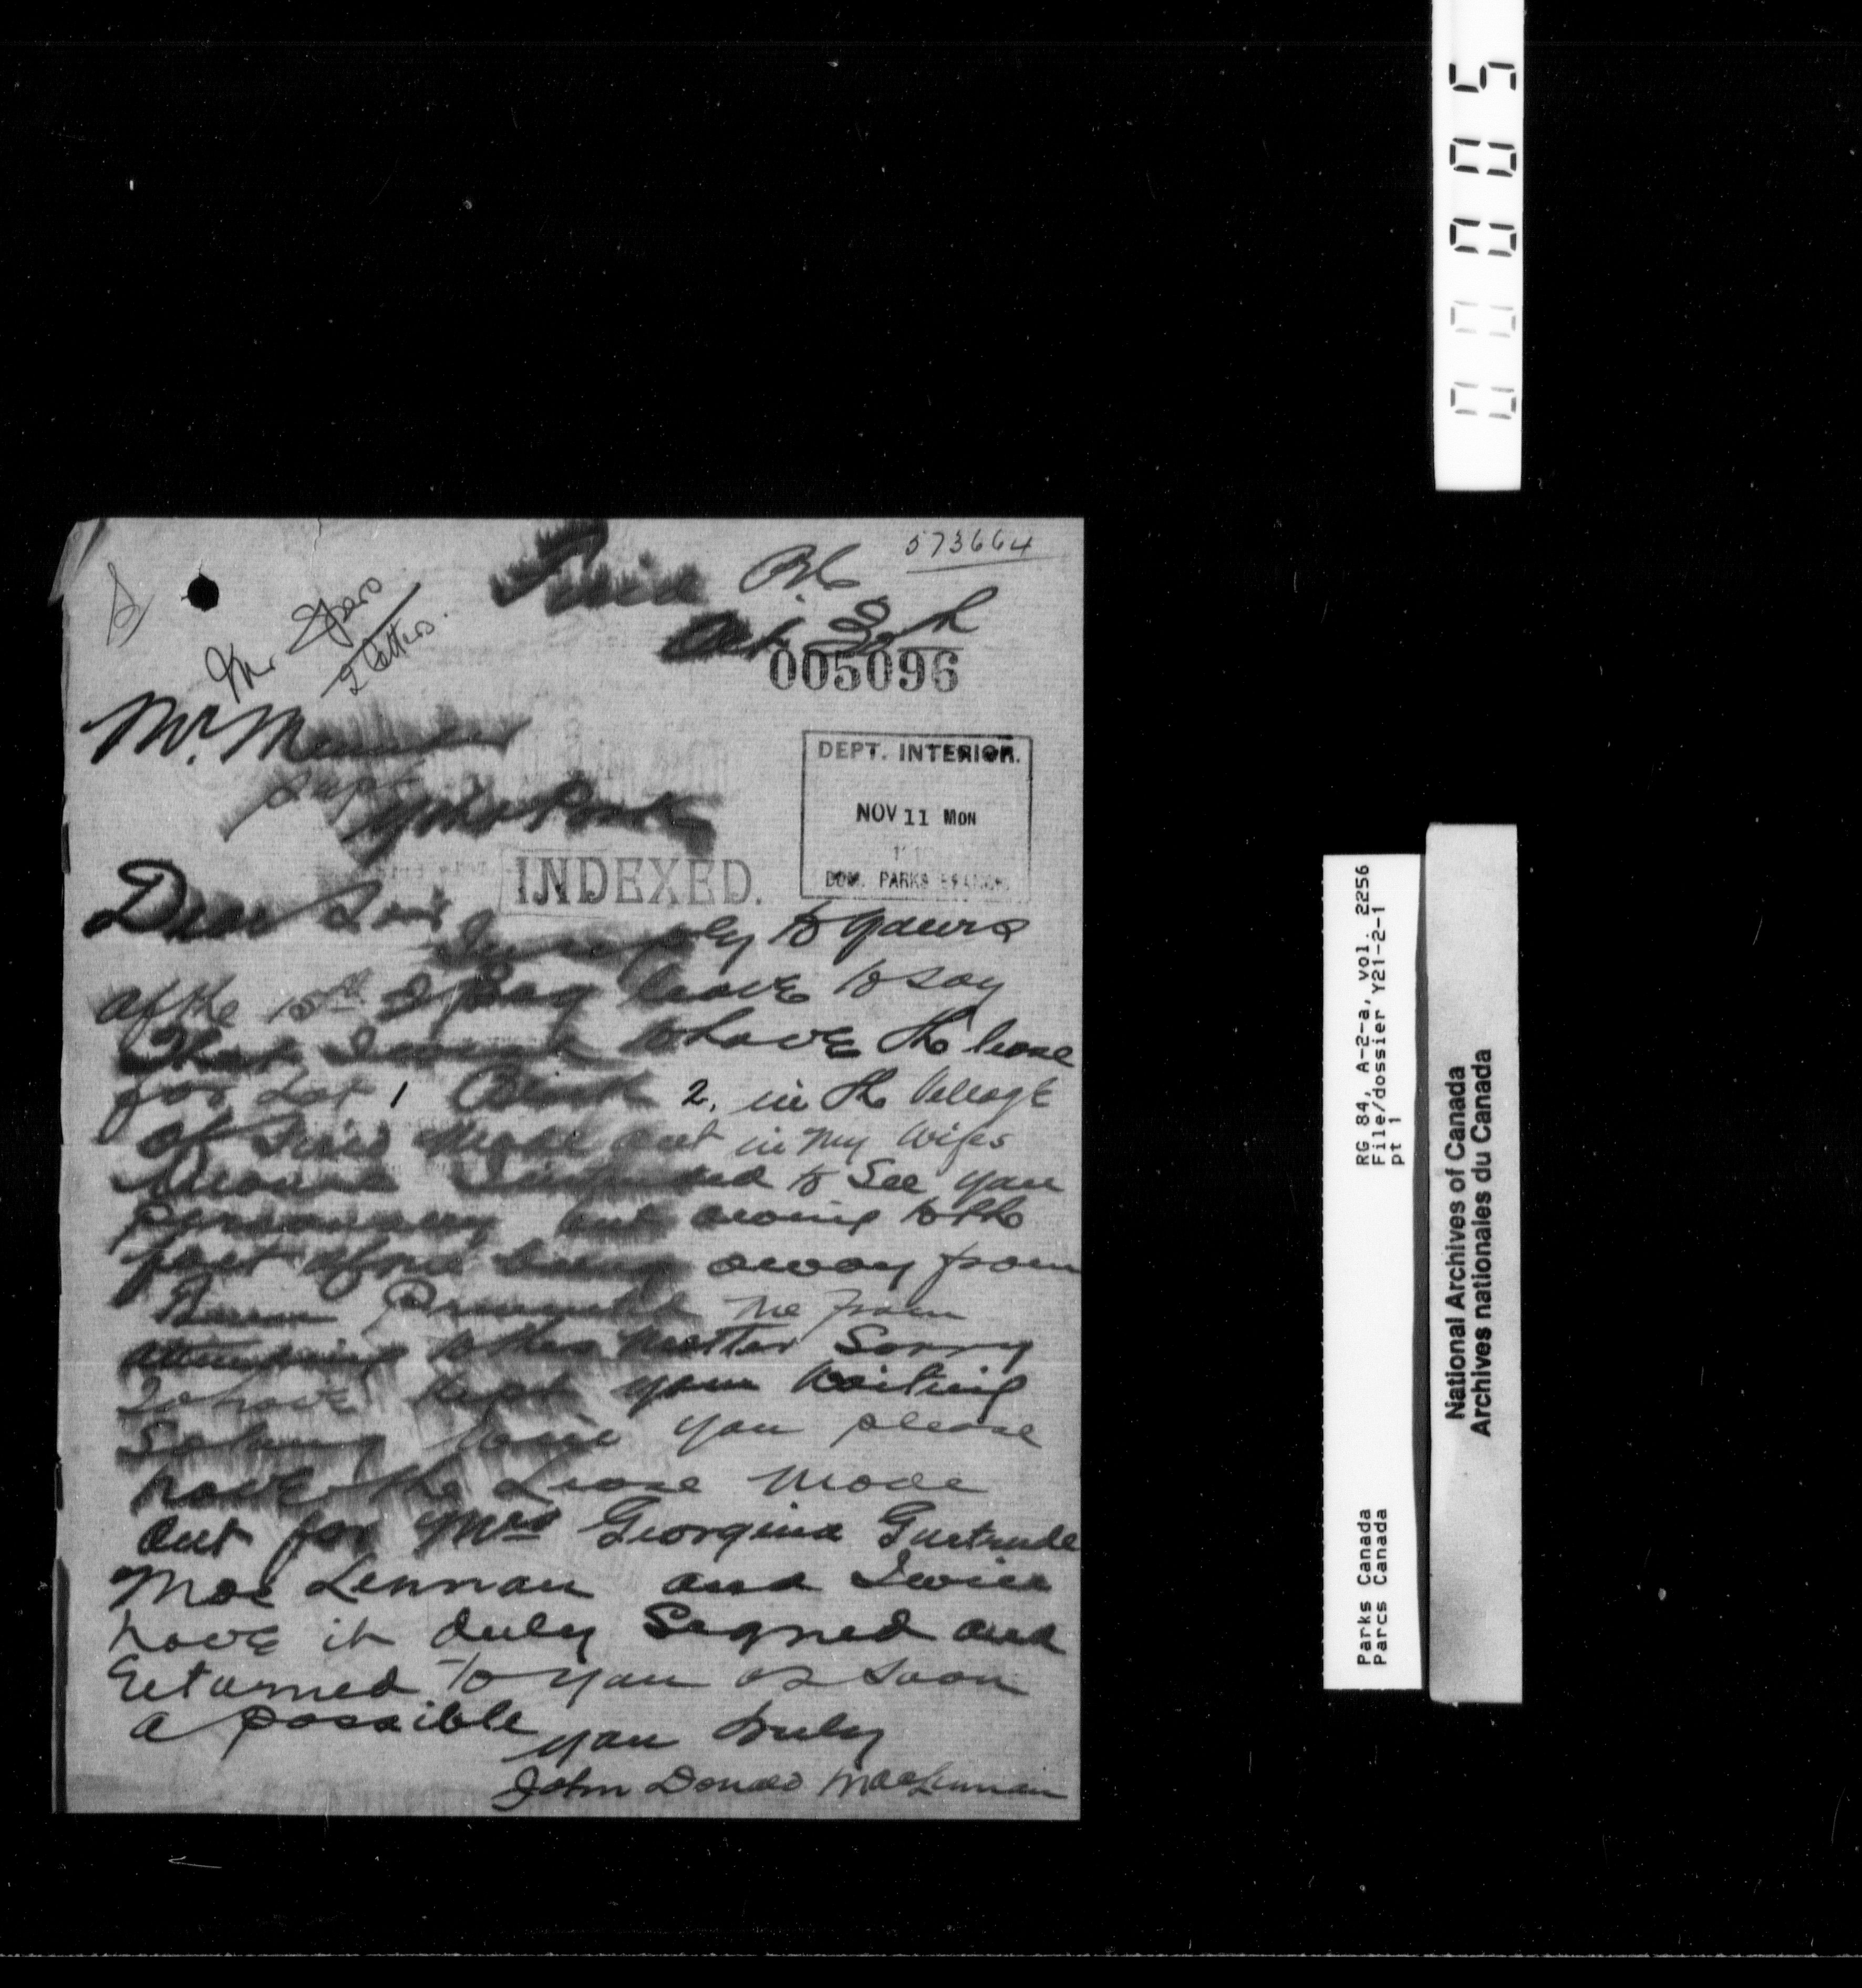 573664
Field B.C.
Oct 30th
005096
Mr
2 letters.
Mr.
Supt
Yoho Park
DEPT. INTERIOR.
NOV 11 MON
DOM. PARKS BRANCH
INDEXED.
Dear Sir
In reply to yours
of the 15th I Beg leave to say
that I want to have the lease
for Lot 1 Block 2. in the Village
of Field Made out in my wifes
I intended to See you
personally but owing to the
fact of me being away from
Prevented me from
attending to this matter Sorry
to have kept you waiting
So long you please
have the Lease Made
out for Mrs Georgina Gertrude
Mac Lennan and I will
have it duly Signed and
Returned to you as Soon
a possible
you truly
John Donald MacLennan
00005
RG 84, A-2-a, vol. 2256
File/dossier Y21-2-1
pt 1
Parks Canada
Parcs Canada
National Archives of Canada
Archives nationales du Canada